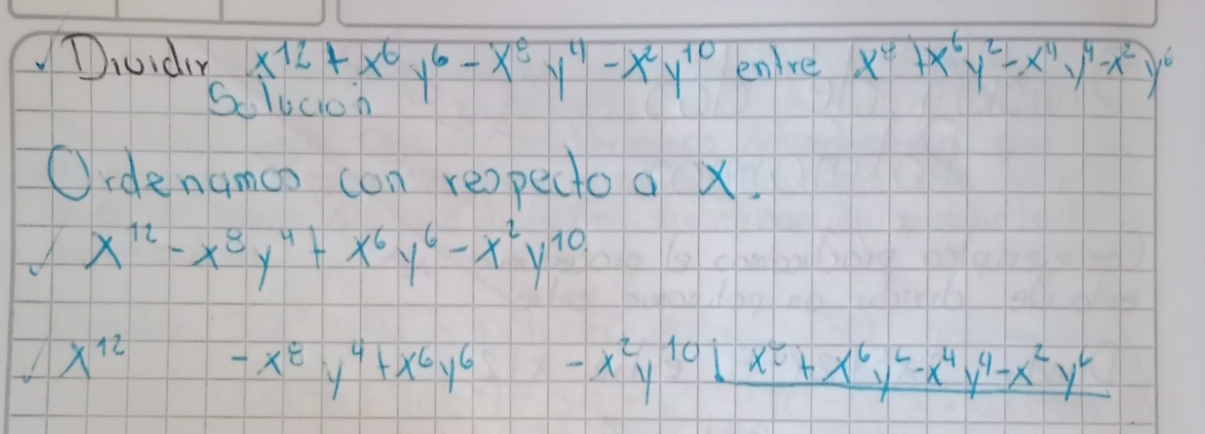 ✓ Dividir x¹² + x⁶ y⁶ - x⁸ y⁴ - x² y¹⁰ entre x⁸ + x⁶ y² - x⁴ y⁴ - x² y⁶
Solución
Ordenamos con respecto a X.
✓ x¹² - x⁸ y⁴ + x⁶ y⁶ - x² y¹⁰
✓ x¹² - x⁸ y⁴ + x⁶ y⁶ - x² y¹⁰ | x⁸ + x⁶ y² - x⁴ y⁴ - x² y⁶